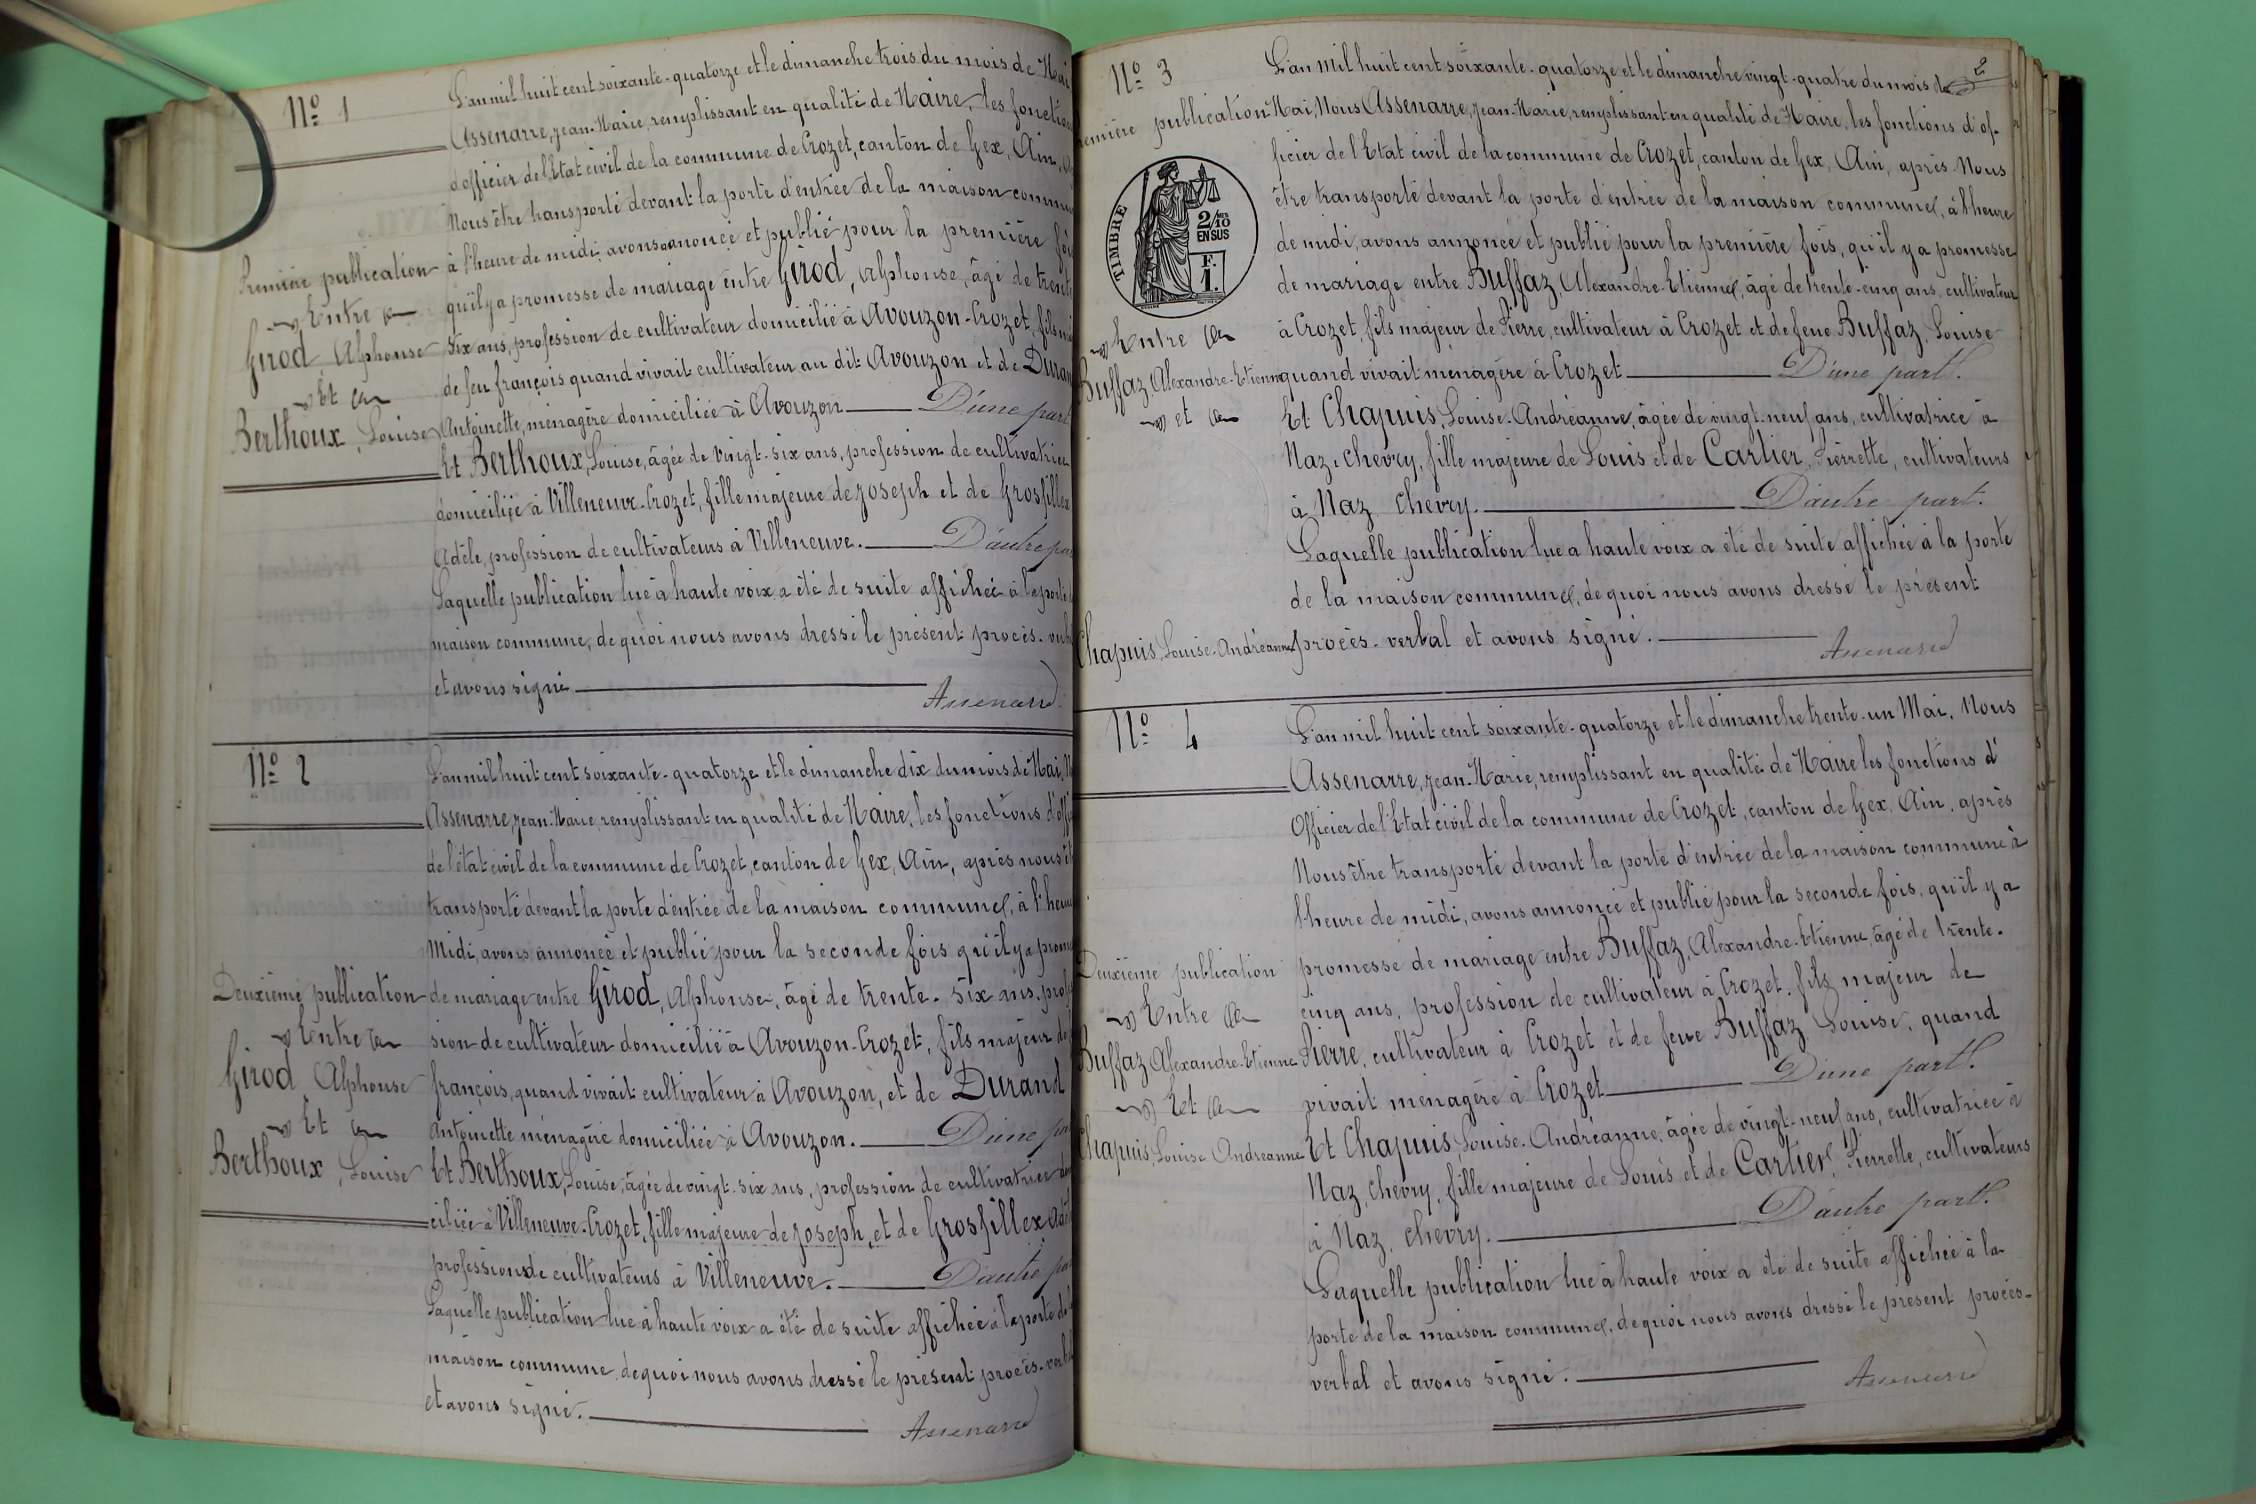 Nº 1
L'an mil huit cent soixante-quatorze et le dimanche trois du mois de Mai
Assenarre, Jean-Marie, remplissant en qualité de Maire, les fonctions
d'officier de l'Etat civil de la commune de Crozet, canton de Gex, Ain,
Nous être transporté devant la porte d'entrée de la maison commu
à l'heure de midi, avons anoncé et publié pour la première foi
qu'il y a promesse de mariage entre Girod, Alphonse, âgé de trente
six ans, profession de cultivateur domicilié à Avouzon-Crozet, fils
de feu françois quand vivait cultivateur au dit Avouzon et de Duran
Antoinette, ménagère domiciliée à Avouzon D'une part
Et Berthoux, Louise, âgée de vingt-six ans, profession de cultivatrice
domiciliée à Villeneuve-Crozet, fille majeure de Joseph et de Grosfillex
Adèle, profession de cultivateurs à Villeneuve. D'autre pa
Laquelle publication lue à haute voix a été de suite affichée à la porte
maison commune, de quoi nous avons dressé le présent procès-verb
et avons signé Assenarre
Première publication
Entre
Girod, Alphonse
Et
Berthoux, Louise
Nº 2
L'an mil huit cent soixante-quatorze et le dimanche dix du mois de Mai, N
Assenarre, Jean-Marie, remplissant en qualité de Maire, les fonctions d'offi
de l'état civil de la commune de Crozet, canton de Gex, Ain, après nous êt
transporté devant la porte d'entrée de la maison commune, à l'heure
Midi, avons annoncé et publié pour la seconde fois qu'il y a prom
de mariage entre Girod, Alphonse, âgé de trente-six ans, profes
sion de cultivateur domicilié à Avouzon-Crozet, fils majeur de
françois, quand vivait cultivateur à Avouzon, et de Durand
Antoinette ménagère domiciliée à Avouzon. D'une par
Et Berthoux, Louise, âgée de vingt-six ans, profession de cultivatrice do
ciliée à Villeneuve-Crozet, fille majeure de Joseph, et de Grosfillex Adèl
profession de cultivateurs à Villeneuve. D'autre pa
Laquelle publication lue à haute voix a été de suite affichée à la porte de
maison commune de quoi nous avons dressé le présent procès-verb
et avons signé. Assenarre
Deuxième publication
Entre
Girod, Alphonse
Et
Berthoux, Louise
2
Nº 3
L'an Mil huit cent soixante-quatorze et le dimanche vingt-quatre du mois de
Mai, Nous Assenarre, Jean-Marie, remplissant en qualité de Maire, les fonctions d'of-
ficier de l'Etat civil de la commune de Crozet, canton de Gex, Ain, après Nous
être transporté devant la porte d'entrée de la maison commune, à l'heure
de midi, avons annoncé et publié pour la première fois, qu'il y a promesse
de mariage entre Buffaz, Alexandre-Etienne, âgé de trente-cinq ans, cultivateur
à Crozet, fils majeur de Pierre, cultivateur à Crozet et de feue Buffaz, Louise
quand vivait ménagère à Crozet D'une part.
Et Chapuis, Louise-Andréanne, âgée de vingt-neuf ans, cultivatrice à
Naz-Chevry, fille majeure de Louis et de Cartier, Pierrette, cultivateurs
à Naz Chevry. D'autre part.
Laquelle publication lue a haute voix a été de suite affichée à la porte
de la maison commune, de quoi nous avons dressé le présent
procès-verbal et avons signé. Assenarre
emière publication
TIMBRE
2/10
EN SUS
F.
1.
Entre
Buffaz Alexandre-Etienne
et
Chapuis, Louise-Andréanne
Nº 4
L'an mil huit cent soixante-quatorze et le dimanche trente-un Mai, Nous
Assenarre, Jean-Marie, remplissant en qualité de Maire les fonctions d'
Officier de l'Etat civil de la commune de Crozet, canton de Gex, Ain, après
Nous être transporté devant la porte d'entrée de la maison commune à
l'heure de midi, avons annoncé et publié pour la seconde fois, qu'il y a
promesse de mariage entre Buffaz, Alexandre-Etienne, âgé de trente-
cinq ans, profession de cultivateur à Crozet, fils majeur de
Pierre, cultivateur à Crozet et de feue Buffaz, Louise, quand
vivait ménagère à Crozet D'une part.
Et Chapuis, Louise-Andréanne, âgée de vingt-neuf ans, cultivatrice à
Naz, Chevry, fille majeure de Louis et de Cartier, Pierrette, cultivateurs
à Naz, Chevry. D'autre part.
Laquelle publication lue à haute voix a été de suite affichée à la
porte de la maison commune, de quoi nous avons dressé le présent procès-
verbal et avons signé. Assenarre
Deuxième publication
Entre
Buffaz Alexandre-Etienne
Et
Chapuis, Louise Andréanne